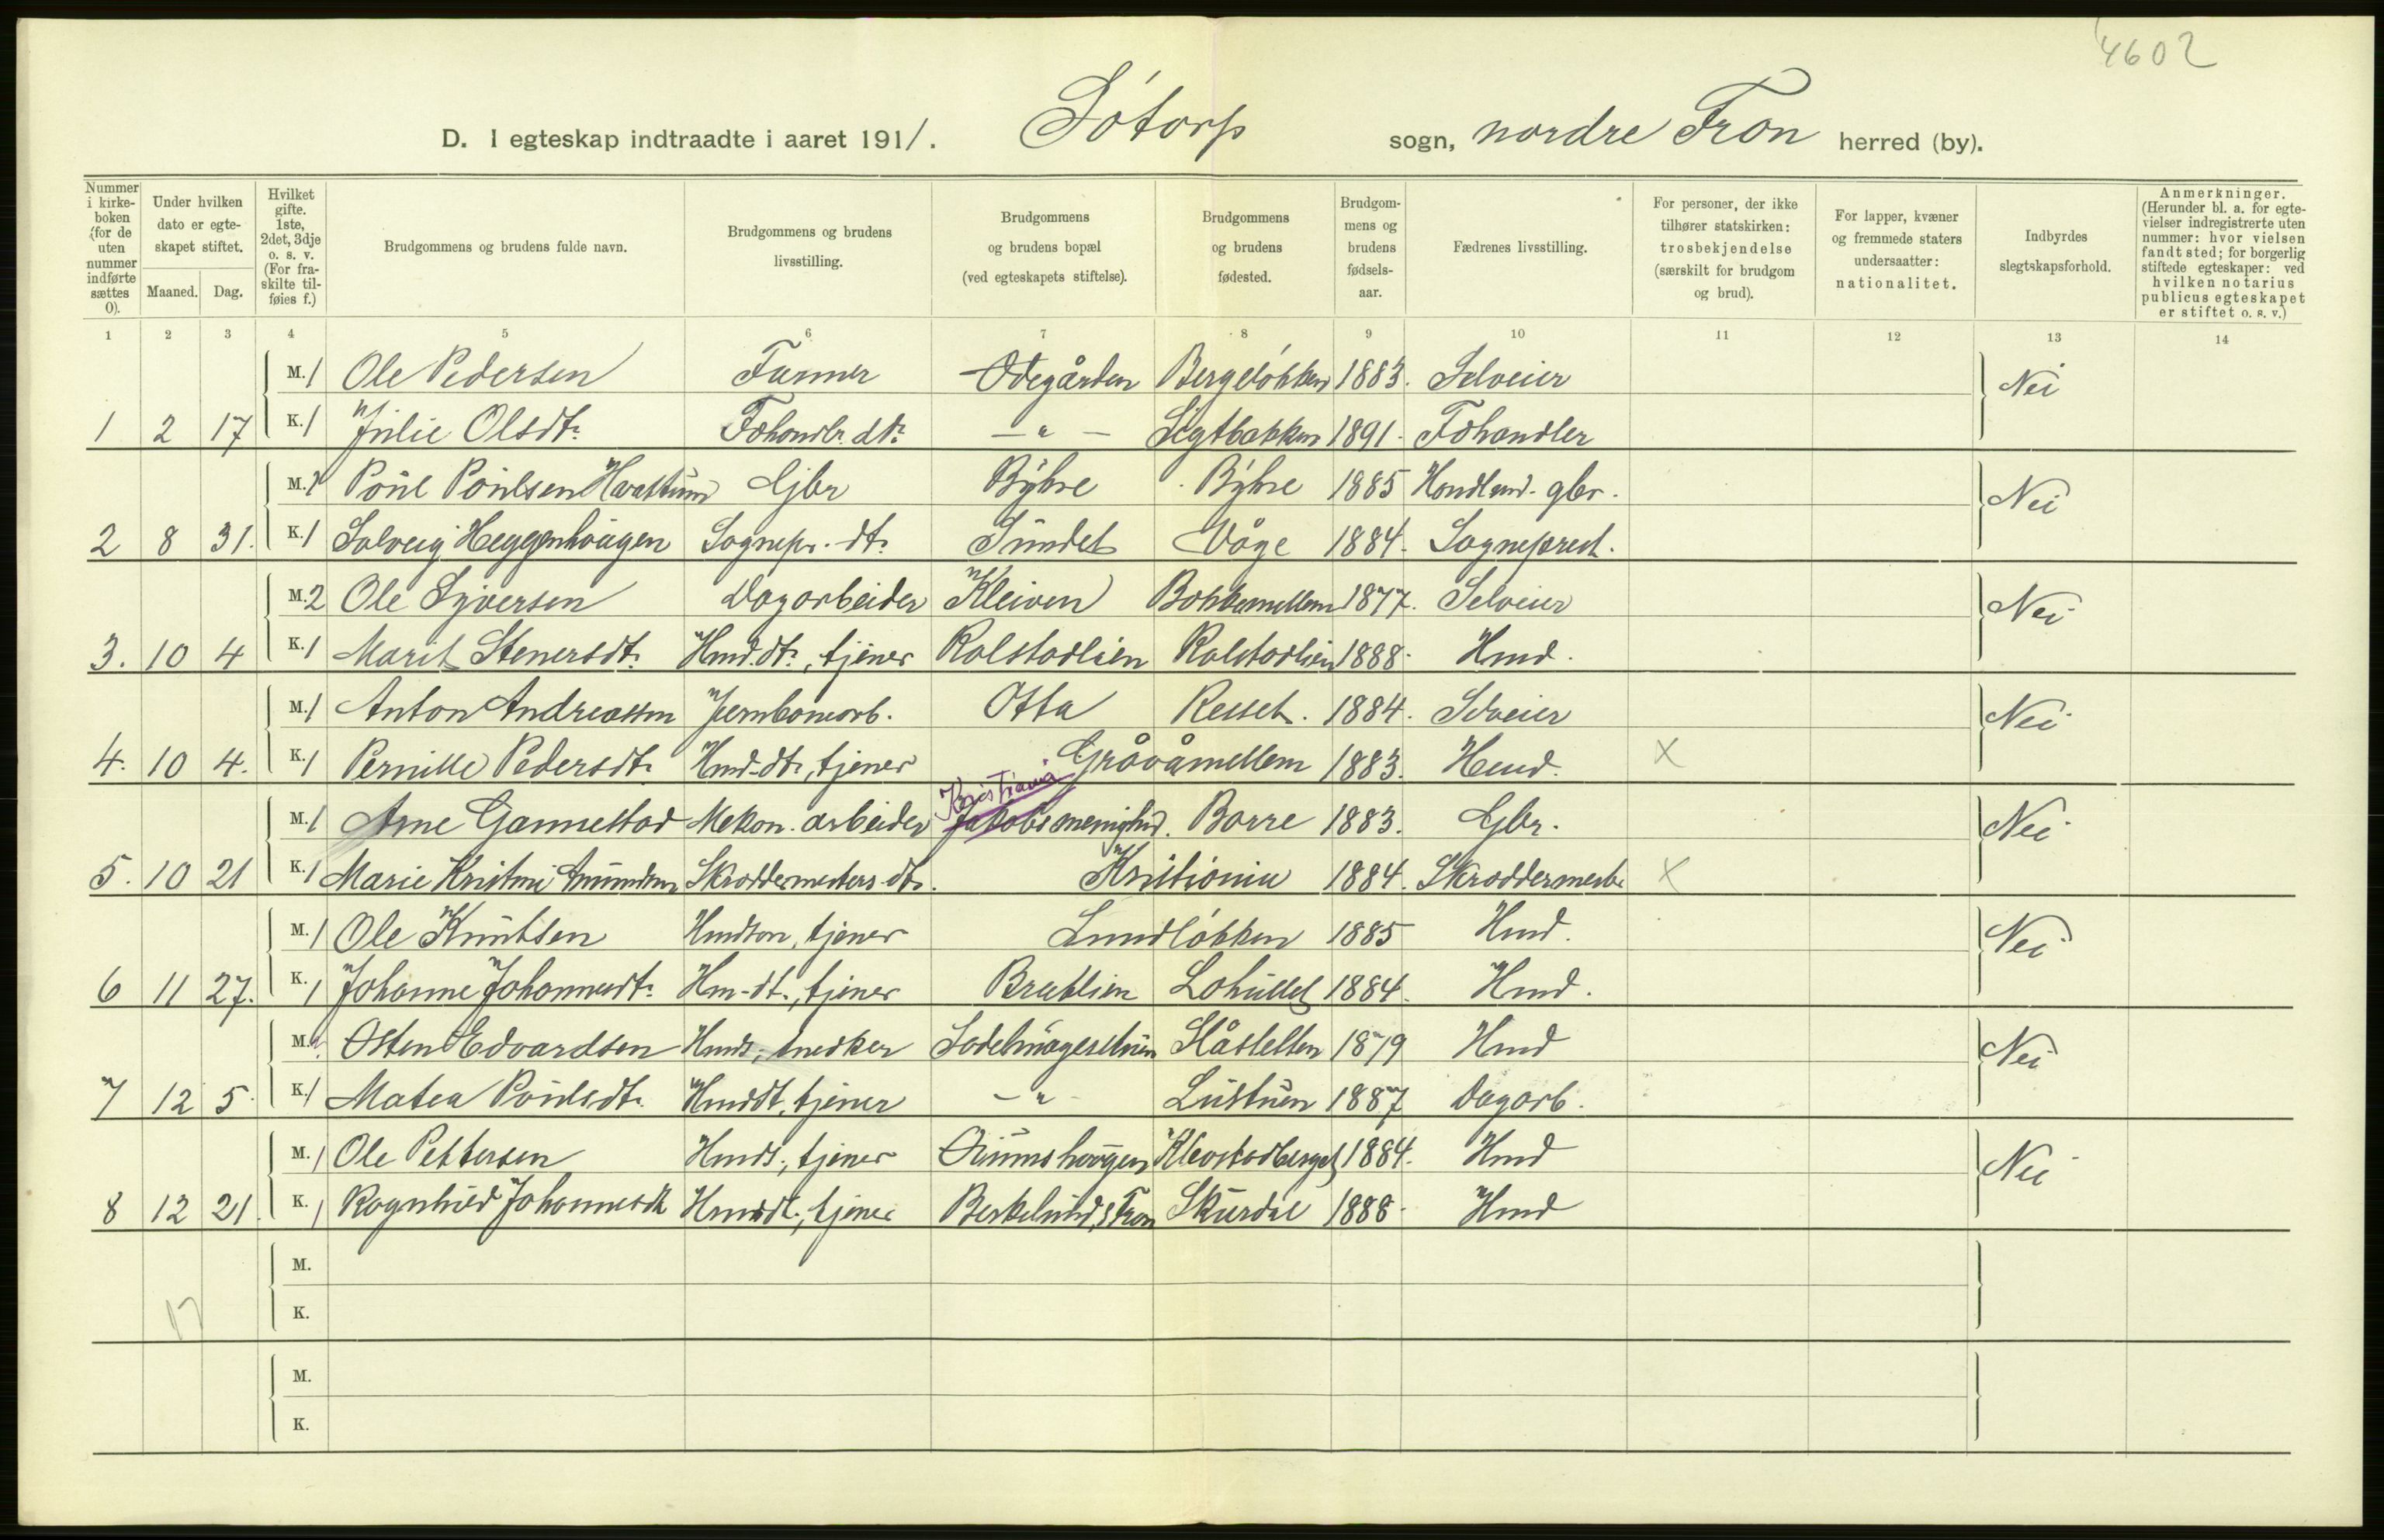 4602
D. I egteskap indtraadte i aaret 1911. Sótorp sogn, nordre Fron herred (by).
Nummer i kirke-boken (for de uten nummer indførte sættes 0).
Under hvilken dato er egte-skapet stiftet.
Maaned. Dag.
Hvilket gifte. 1ste, 2det, 3dje o. s. v. (For fra-skilte til-føies f.)
Brudgommens og brudens fulde navn.
Brudgommens og brudens livsstilling.
Brudgommens og brudens bopæl (ved egteskapets stiftelse).
Brudgommens og brudens fødested.
Brudgom-mens og brudens fødsels-aar.
Fædrenes livsstilling.
For personer, der ikke tilhører statskirken: trosbekjendelse (særskilt for brudgom og brud).
For lapper, kvæner og fremmede staters undersaatter: nationalitet.
Indbyrdes slegtskapsforhold.
Anmerkninger. (Herunder bl. a. for egte-vielser indregistrerte uten nummer: hvor vielsen fandt sted; for borgerlig stiftede egteskaper: ved hvilken notarius publicus egteskapet er stiftet o. s. v.)
1 2 3 4 5 6 7 8 9 10 11 12 13 14
M. 1 Ole Pedersen Farmer Odegården Bergeløkken 1883. Selveier Nei
1 2 17 K. 1 Julie Olsdtr Fehandlr. dtr — " — Sigtbakken 1891. Fehandler
M. 1 Poul Poulsen Harattum Gbr Byhre Byhre 1885 Handland. gbr. Nei
2 8 31. K. 1 Solveig Heggenhougen Sognepr. dtr Sundet Våge 1884. Sogneprest.
M. 2 Ole Syversen Dagarbeider Kleiven Bakkemellem 1877. Selveier Nei
3. 10 4 K. 1 Marit Stenersdtr Hmd.dtr, tjener Kolstadlien Kolstadlien 1888. Hmd.
M. 1 Anton Andreassen Jernbanearb. Otta Resset. 1884. Selveier Nei
4. 10 4. K. 1 Pernille Pedersdtr Hmd-dtr, tjener Gråvåmellem 1883. Hmd. X
Kristiania
M. 1 Arne Gannestad Mekan. arbeider Jakobs menighed. Borre 1883. Gbr. Nei
5. 10 21 K. 1 Marie Kristine Amundsen Skreddermesters dtr. Kristiania 1884. Skreddermester X
M. 1 Ole Knutsen Hmdson, tjener Lundløkken 1885 Hmd. Nei
6 11 27. K. 1 Johanne Johannesdtr Hm-dtr, tjener Bratlien 1884. Hmd.
M. Osten Edvardsen Hmds, snedker Slåsletten 1879 Hmd Nei
7 12 5. K. 1 Matea Poulsdtr Hmddt, tjener — " — Lustuen 1887 Dagarb.
M. 1 Ole Pettersen Hmds., tjener Klevstadberget 1884. Hmd Nei
8 12 21. K. 1 Ragnhild Johannesdt Hmddt., tjener s. Fron Skurdal 1888. Hmd
M.
17 K.
M.
K.